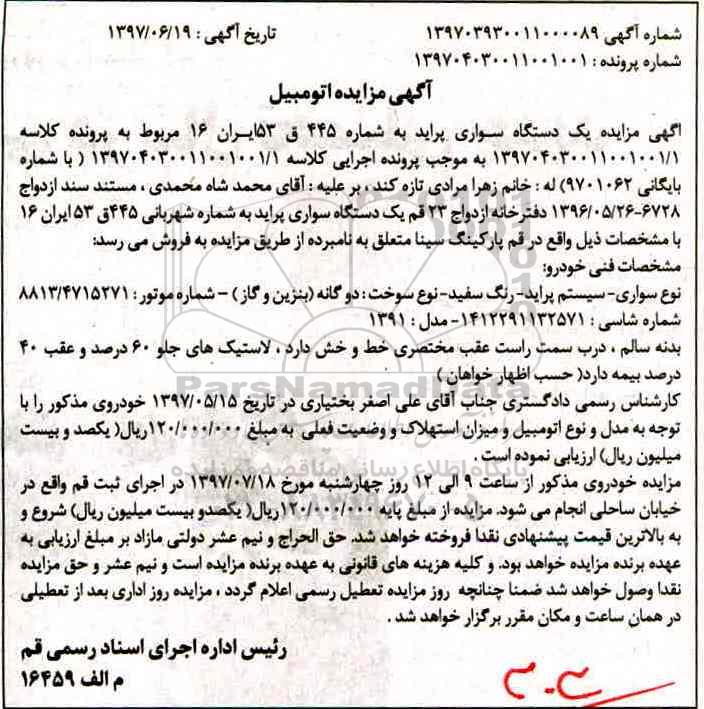 شماره آگهی ۱۳۹۷۰۳۹۳۰۰۱۱۰۰۰۰۸۹ تاریخ آگهی : ۱۳۹۷/۰۶/۱۹
شماره پرونده : ۱۳۹۷۰۴۰۳۰۰۱۱۰۰۱۰۰۱
آگهی مزایده اتومبیل
اگهی مزایده یک دستگاه سواری پراید به شماره ۴۴۵ ق ۵۳ایران ۱۶ مربوط به پرونده کلاسه
۱۳۹۷۰۴۰۳۰۰۱۱۰۰۱۰۰۱/۱ به موجب پرونده اجرایی کلاسه ۱۳۹۷۰۴۰۳۰۰۱۱۰۰۱۰۰۱/۱ ( با شماره
بایگانی ۹۷۰۱۰۶۲) له : خانم زهرا مرادی تازه کند ، بر علیه : آقای محمد شاه محمدی ، مستند سند ازدواج
۶۷۲۸-۱۳۹۶/۰۵/۲۶ دفترخانه ازدواج ۲۳ قم یک دستگاه سواری پراید به شماره شهربانی ۴۴۵ق ۵۳ ایران ۱۶
با مشخصات ذیل واقع در قم پارکینگ سینا متعلق به نامبرده از طریق مزایده به فروش می رسد:
مشخصات فنی خودرو:
نوع سواری- سیستم پراید- رنگ سفید- نوع سوخت : دو گانه (بنزین و گاز) – شماره موتور : ۸۸۱۳/۴۷۱۵۲۷۱
شماره شاسی : ۱۴۱۲۲۹۱۱۳۲۵۷۱- مدل : ۱۳۹۱
بدنه سالم ، درب سمت راست عقب مختصری خط و خش دارد ، لاستیک های جلو ۶۰ درصد و عقب ۴۰
درصد بیمه دارد( حسب اظهار خواهان )
کارشناس رسمی دادگستری جناب آقای علی اصغر بختیاری در تاریخ ۱۳۹۷/۰۵/۱۵ خودروی مذکور را با
توجه به مدل و نوع اتومبیل و میزان استهلاک و وضعیت فعلی به مبلغ ۱۲۰/۰۰۰/۰۰۰ریال( یکصد و بیست
میلیون ریال) ارزیابی نموده است .
مزایده خودروی مذکور از ساعت ۹ الی ۱۲ روز چهارشنبه مورخ ۱۳۹۷/۰۷/۱۸ در اجرای ثبت قم واقع در
خیابان ساحلی انجام می شود. مزایده از مبلغ پایه ۱۲۰/۰۰۰/۰۰۰ریال( یکصدو بیست میلیون ریال) شروع و
به بالاترین قیمت پیشنهادی نقدا فروخته خواهد شد. حق الحراج و نیم عشر دولتی مازاد بر مبلغ ارزیابی به
عهده برنده مزایده خواهد بود. و کلیه هزینه های قانونی به عهده برنده مزایده است و نیم عشر و حق مزایده
نقدا وصول خواهد شد ضمنا چنانچه روز مزایده تعطیل رسمی اعلام گردد ، مزایده روز اداری بعد از تعطیلی
در همان ساعت و مکان مقرر برگزار خواهد شد .
رئیس اداره اجرای اسناد رسمی قم
م الف ۱۶۴۵۹
ParsNamadData
پایگاه اطلاع رسانی مناقصه و مزایده